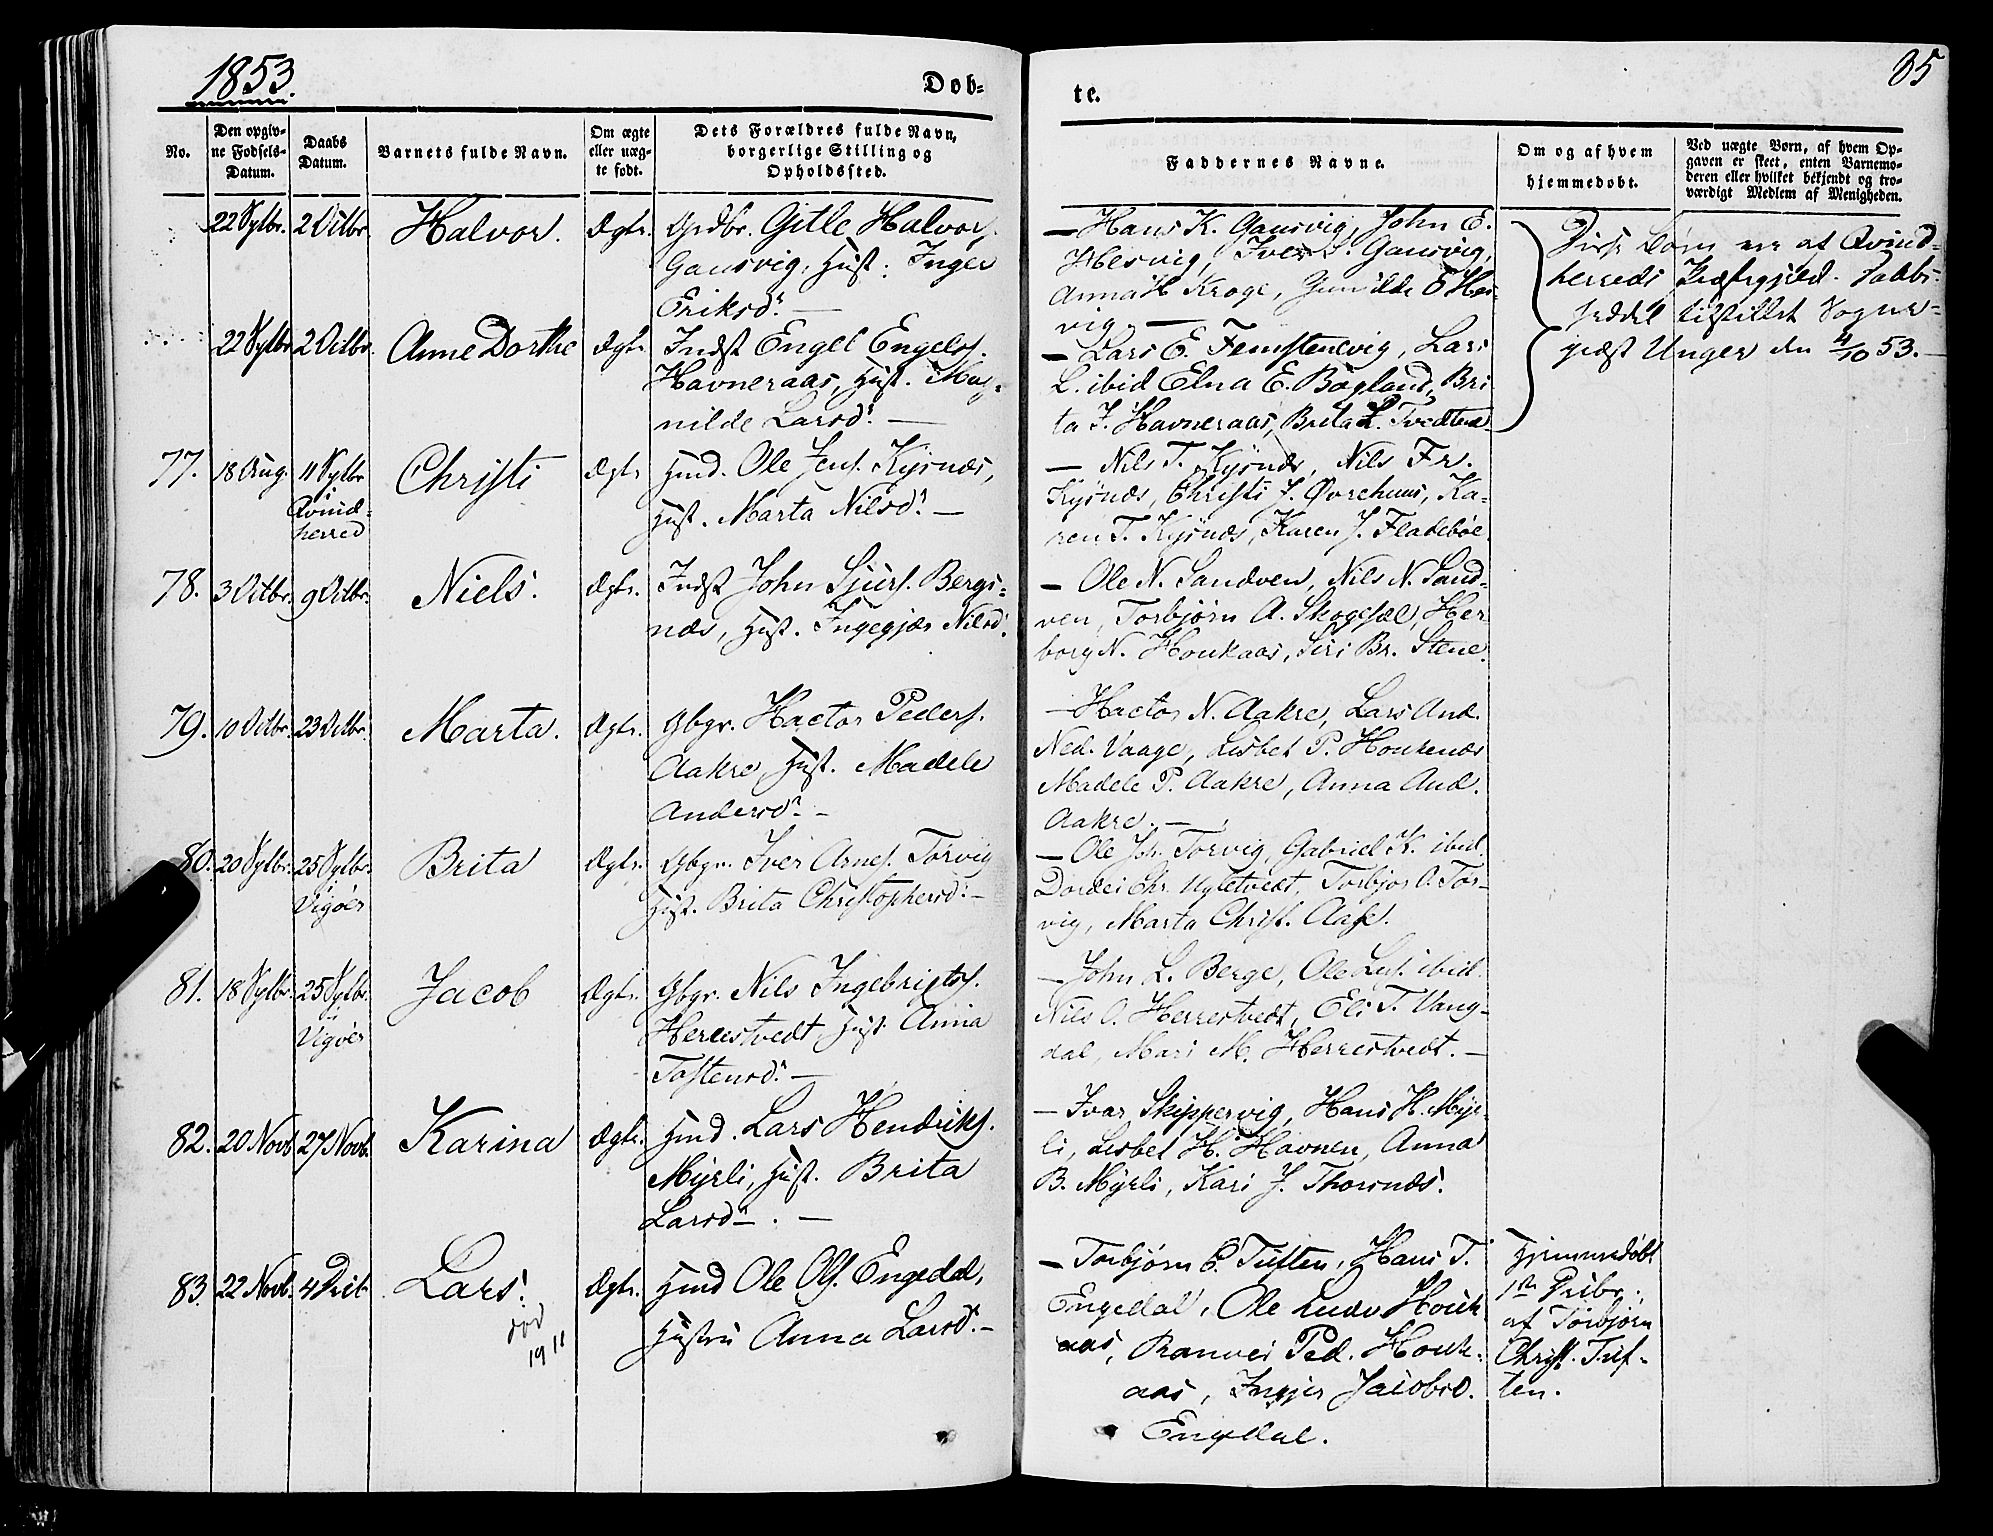 1853.
85
Døb-
te.
No.
Den opgiv-
ne Fødsels-
Datum.
Daabs
Datum.
Barnets fulde Navn.
Om ægte
eller uæg-
te født.
Dets Forældres fulde Navn,
borgerlige Stilling og
Opholdssted.
Faddernes Navne.
Om og af hvem
hjemmedøbt.
Ved uægte Børn, af hvem Op-
gaven er skeet, enten Barnemo-
deren eller hvilket bekjendt og tro-
værdigt Medlem af Menigheden.
22 Sptbr. 2 Octbr. Halvor. Ægte. Grdbr. Gitle Halvors.
Gausvig, Hust: Inger
Eriksd. —
— Hans K. Gausvig, John E.
Hesvig, Iver L. Gausvig,
Anna H Kroge, Gunilde E Hes-
vig. —
Disse Børn ere af Qvind-
herreds Præstegjeld. Daabs-
seddel tilstillet Sogne-
præst Unger den 4/10 53. —
22 Sptbr 2 Octbr. Anne Dorthe Ægte. Indst Engel Engels.
Havneraas, Hust. Mag-
nilde Larsd. —
— Lars E. Femstenevig, Lars
L. ibid Elna E. Bogland, Bri
ta J. Havneraas, Brita L. Tvedtnæs.
77. 18 Aug. 11 Sptbr
i
Qvind-
herred
Christi Ægte Hmd. Ole Jens. Kysnæs,
Hust. Marta Nilsd. —
— Nils T. Kysnæs, Nils Fr.
Kysnæs, Christi J. Øvrehuus, Ka-
ren T. Kysnæs, Karen J. Fladebøe.
78. 3 Octbr. 9 Octbr. Niels. Ægte. Indst John Sjurs. Bergs-
næs, Hust. Ingegjær Nilsd.
— Ole N. Sandven, Nils N. Sand-
ven, Torbjørn A. Skogesæl, Her-
borg N. Houkaas, Siri Br. Stene.
79. 10 Octbr. 23 Octbr. Marta. Ægte. Gbgr. Hactor Peders.
Aakre, Hust. Madele
Andersd. —
— Hactor N. Aakre, Lars And.
Ned. Vaage, Lisbet P. Houkenæs
Madele P. Aakre, Anna And.
Aakre. —
80. 20 Sptbr. 25 Sptbr.
i
Vigøer
Brita Ægte. Gbgr. Iver Arnes. Torvig
Hust. Brita Christophersd. —
— Ole Joh. Torvig, Gabriel K. ibid.
Dordei Chr. Nyletvedt, Torbjør O. Tor-
vig, Marta Christ. Aase.
81. 18 Sptbr. 25 Sptbr.
i
Vigøer
Jacob Ægte. Gbgr. Nils Ingebrigts.
Herrestvedt, Hust. Anna
Tostensd. —
— John L. Berge, Ole Lars. ibid.
Nils O. Herrestvedt, Eli T. Vang-
dal, Mari M. Herrestvedt. —
82. 20 Novb. 27 Novb. Karina Ægte. Hmd. Lars Hendriks.
Myrli, Hust. Brita
Larsd. —
— Ivar Skippervig, Hans H. Myr-
li, Lisbet H. Havnen, Anna
B. Myrli, Kari J. Thorsnæs.
83. 22 Novb. 4 Decb. Lars. Ægte. Hmd Ole Ols. Engedal,
Hustru Anna Larsd. —
død
1911
— Torbjørn C. Tuften, Hans T.
Engedal, Ole Ludv Houk
aas, Ranvei Ped. Houk-
aas, Ingjer Jacobsd.
Engedal.
Hjemmedøbt
1ste Decbr.
af Torbjørn
Christ. Tuf-
ten.